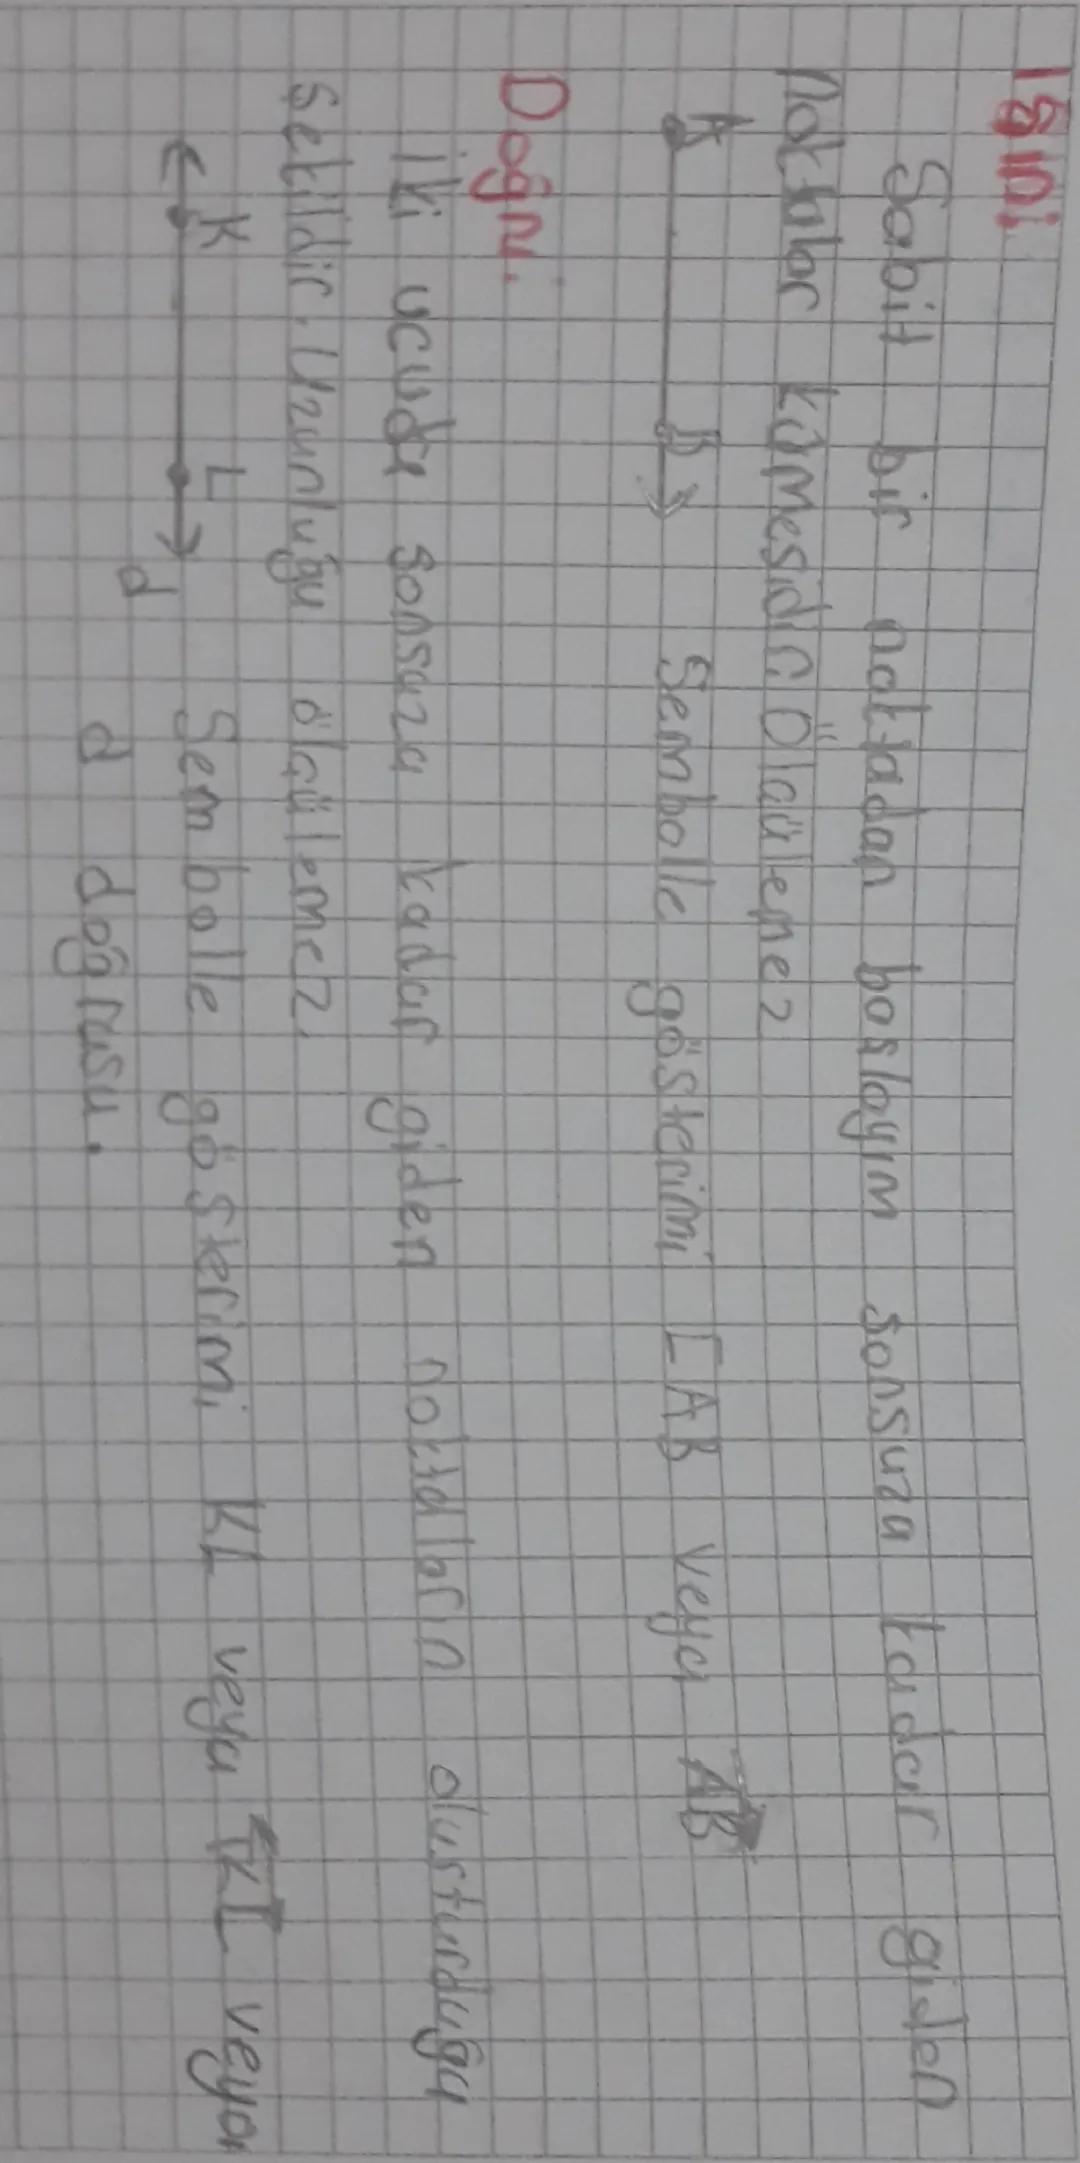 Işın:
Sabit bir noktadan baslayım sonsuza kadar giden
noktalar kümesidir. Ölçülemez
A B Sembolle gösterimi [AB veya AB
Doğru:
İki ucuda sonsuza kadar giden noktaların olusturduğu
sekildir. Uzunluğu ölçülemez.
K L d Sembolle gösterimi KL veya KL veya
d doğrusu.